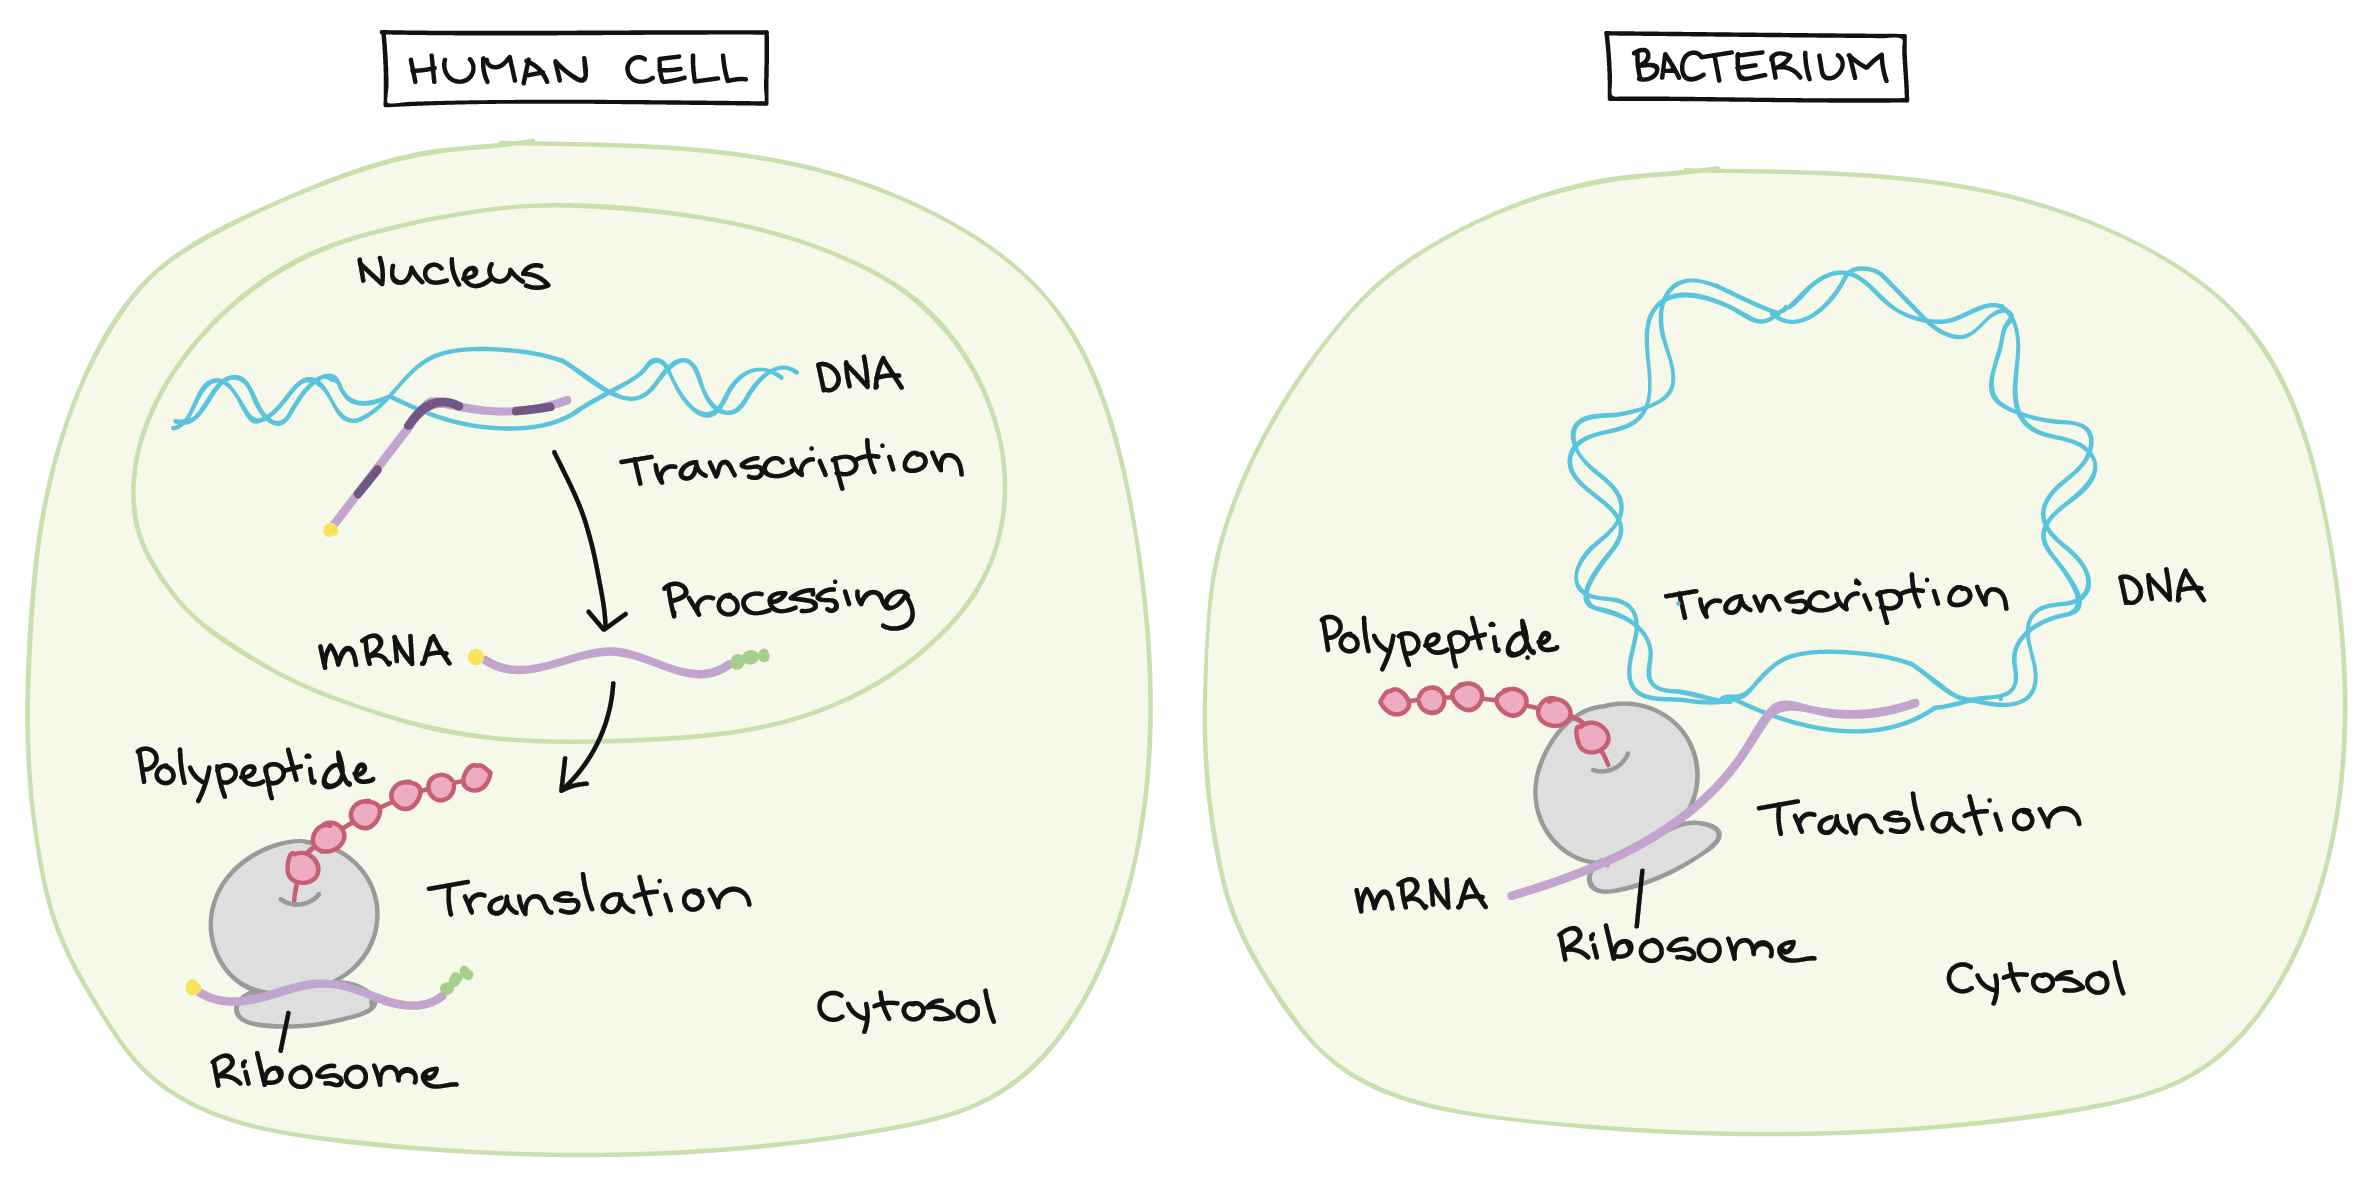 HUMAN CELL
Nucleus
DNA
Transcription
Processing
mRNA
Polypeptide
Translation
Cytosol
Ribosome
BACTERIUM
Transcription
DNA
Polypeptide
Translation
mRNA
Ribosome
Cytosol